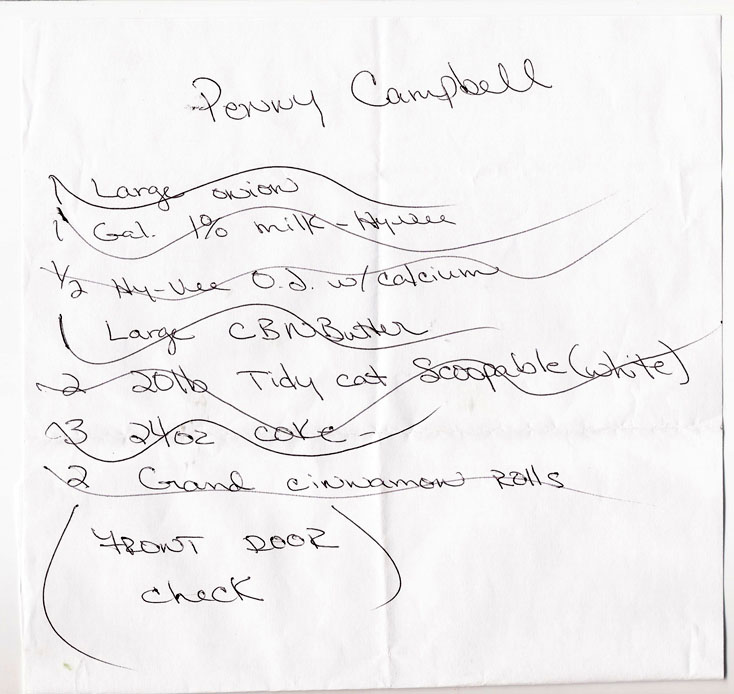 Penny Campbell
1 Large onion
1 Gal. 1% milk - Hy-vee
1/2 Hy-Vee O.J. w/ calcium
1 Large CBN Butter
2 20lb Tidy cat Scoopable (white)
3 24oz coke -
2 Grand cinnamon Rolls
(FRONT DOOR
check)